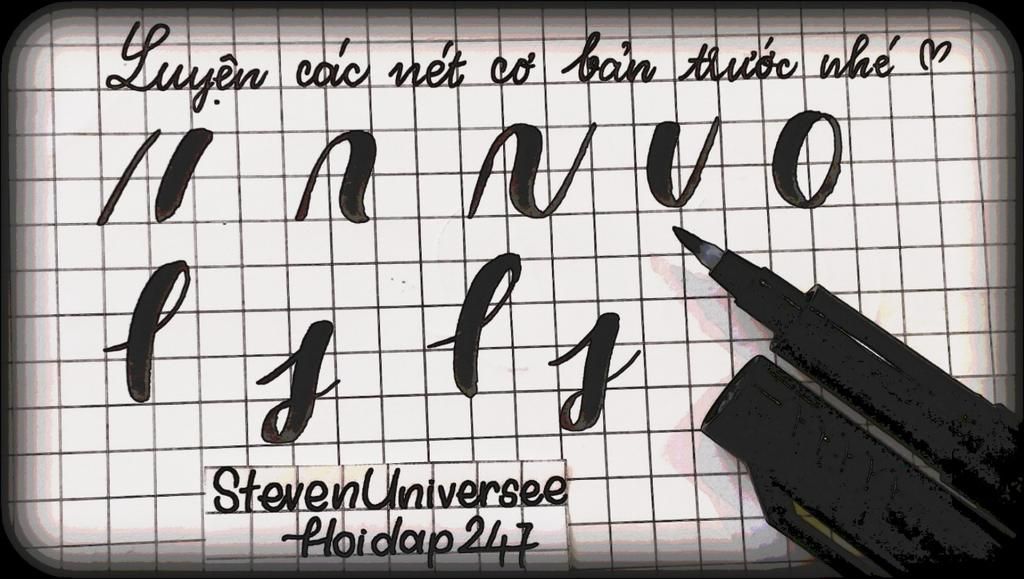 Luyện các nét cơ bản trước nhé ♡
StevenUniversee
Hoidap247